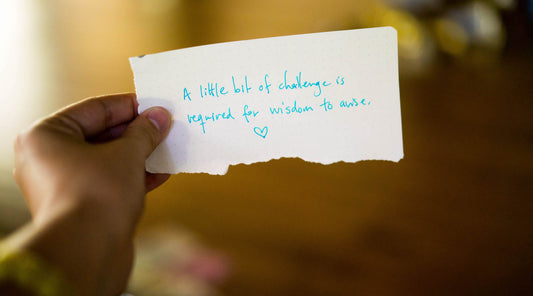 A little bit of challenge is
required for wisdom to arise.